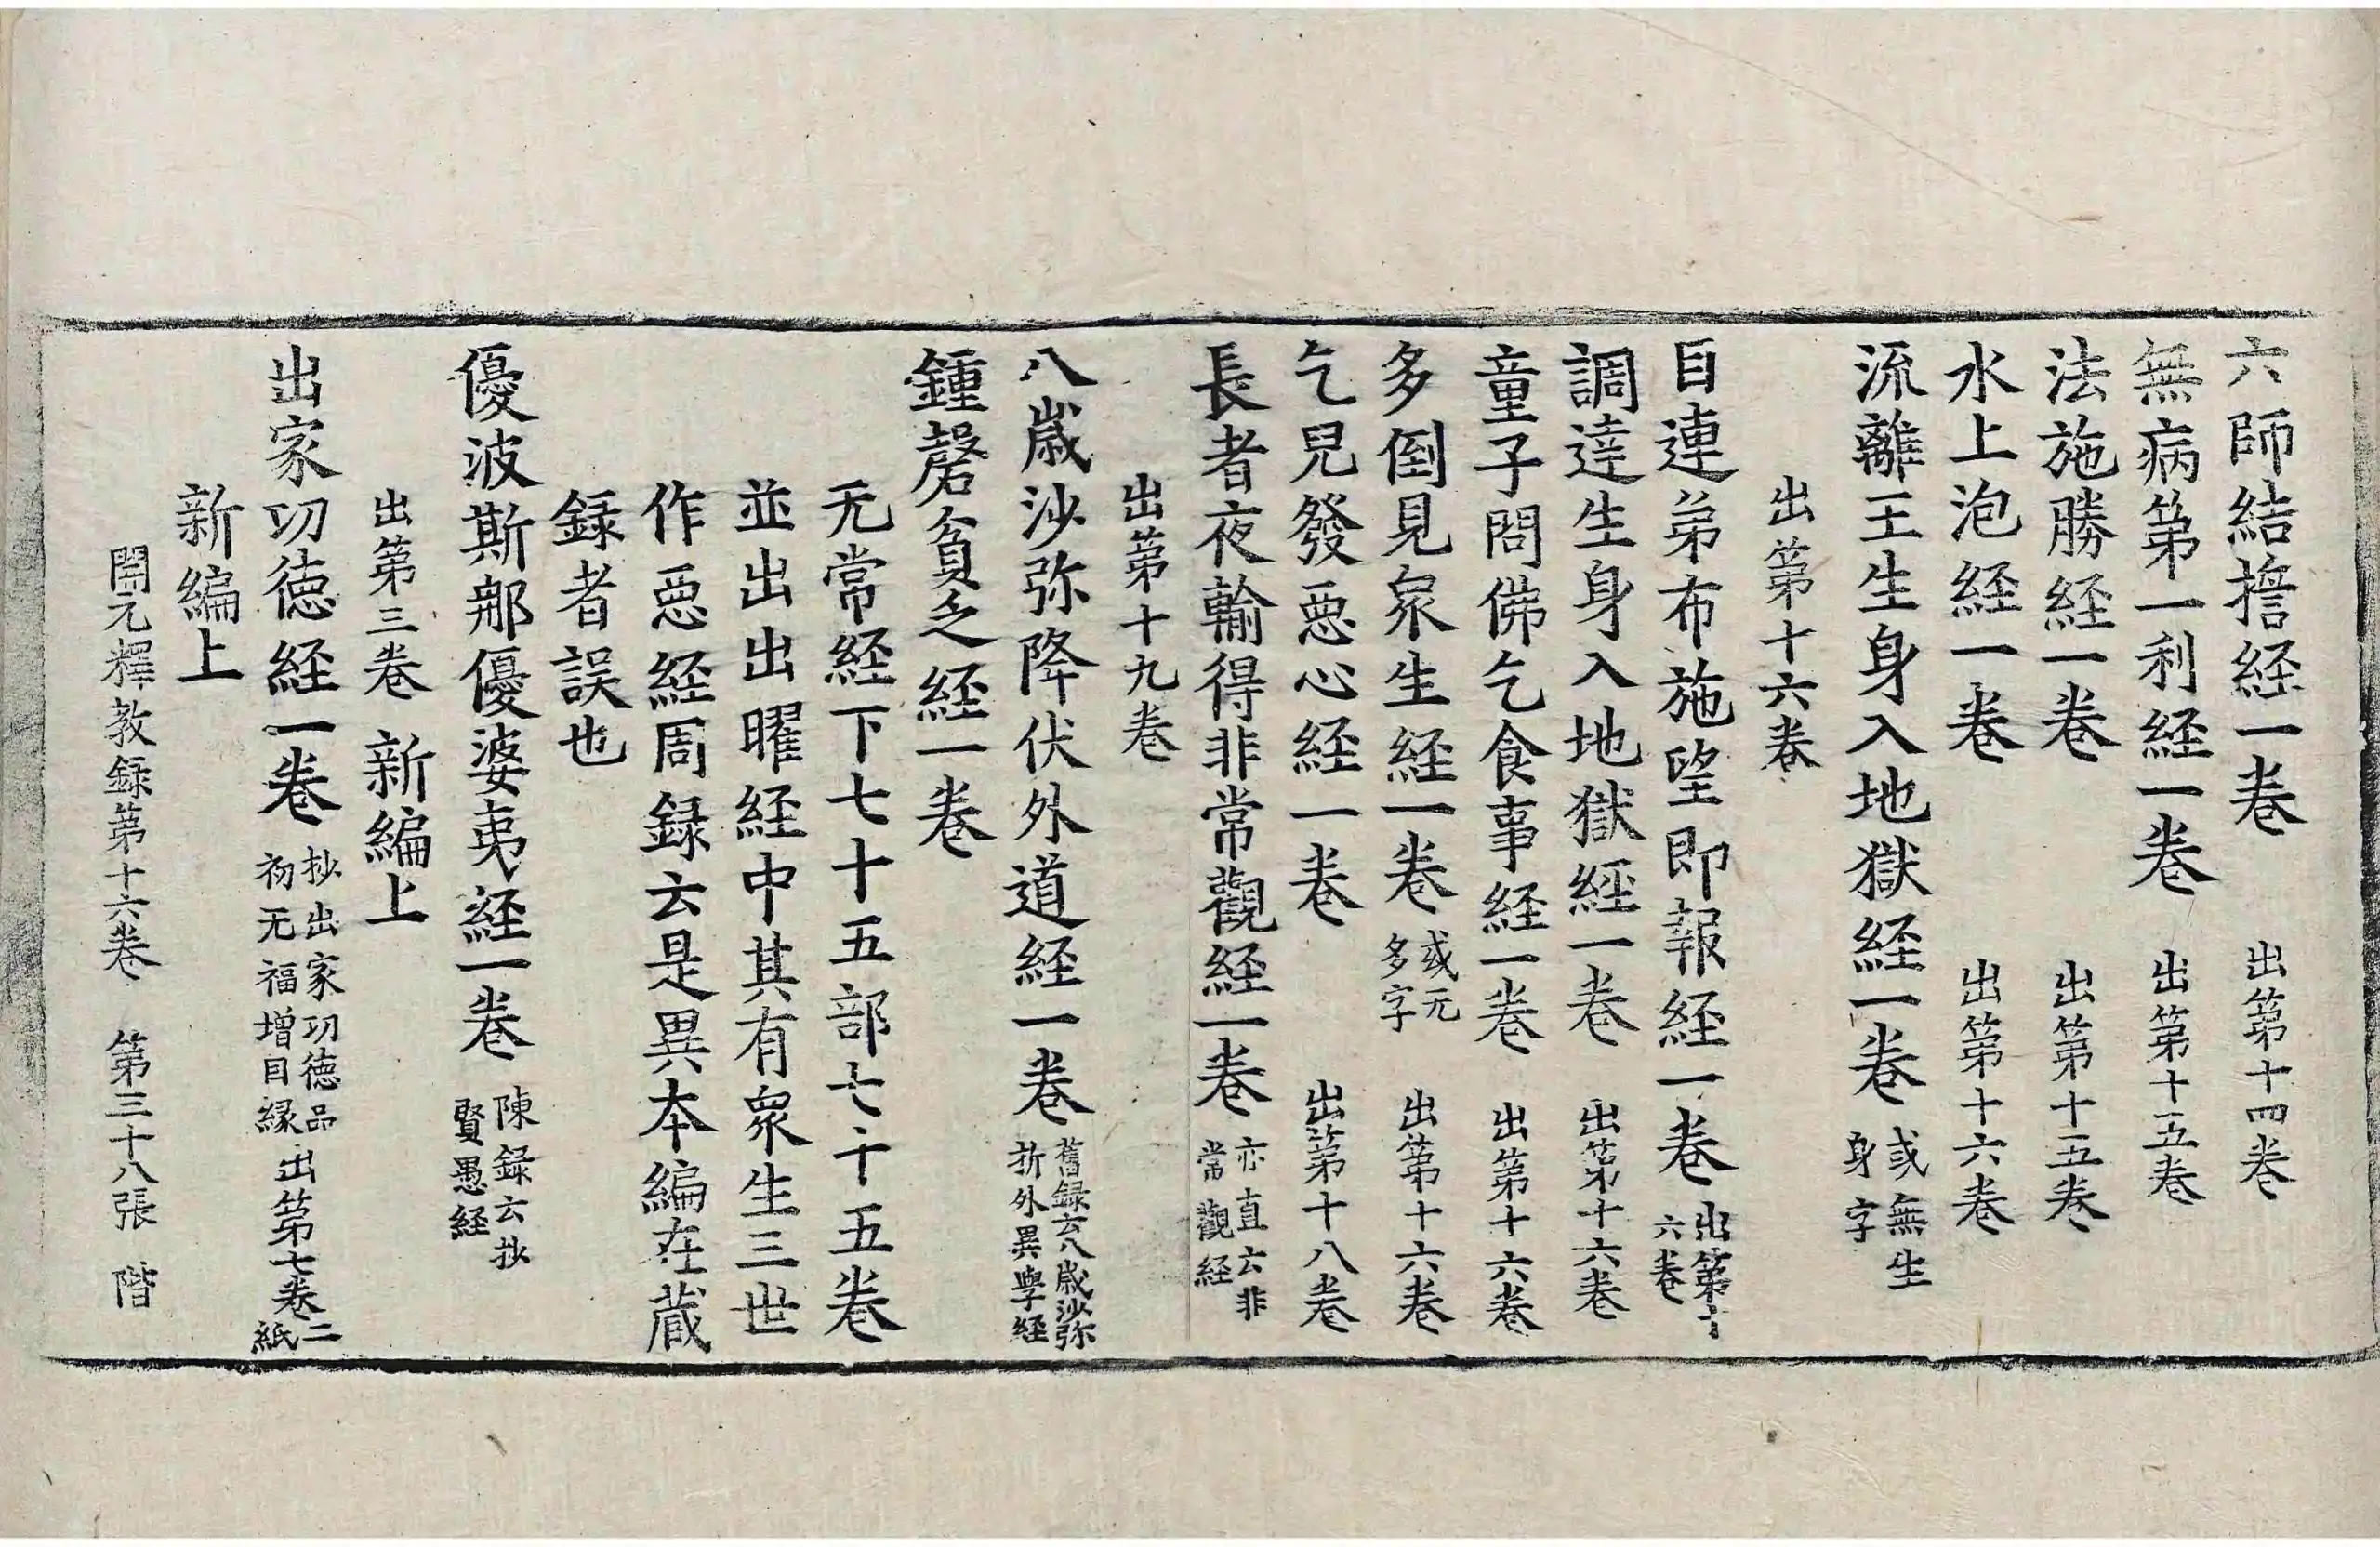 六師結擔経一卷 出第十四卷
無病第一利経一卷 出第十五卷
法施勝経一卷 出第十五卷
水上泡経一卷 出第十六卷
流離王生身入地獄経一卷 或無生身字
出第十六卷
目連弟布施望即報経一卷 出第十六卷
調達生身入地獄経一卷 出第十六卷
童子問佛乞食事経一卷 出第十六卷
多倒見衆生経一卷 或无多字 出第十六卷
乞兒發惡心経一卷 出第十八卷
長者夜輸得非常觀経一卷 亦直云非常觀経
出第十九卷
八歳沙弥降伏外道経一卷 舊録云八歳沙弥折外異學経
鍾磬貧乏経一卷
无常経下七十五部七十五卷
並出出曜経中其有衆生三世
作惡経周録云是異本編在蔵
録者誤也
優波斯那優婆夷経一卷 陳録云抄賢愚経
出第三卷 新編上
出家功徳経一卷 抄出家功徳品初无福増因縁 出第七卷二紙
新編上
開元釋教録第十六卷 第三十八張 階